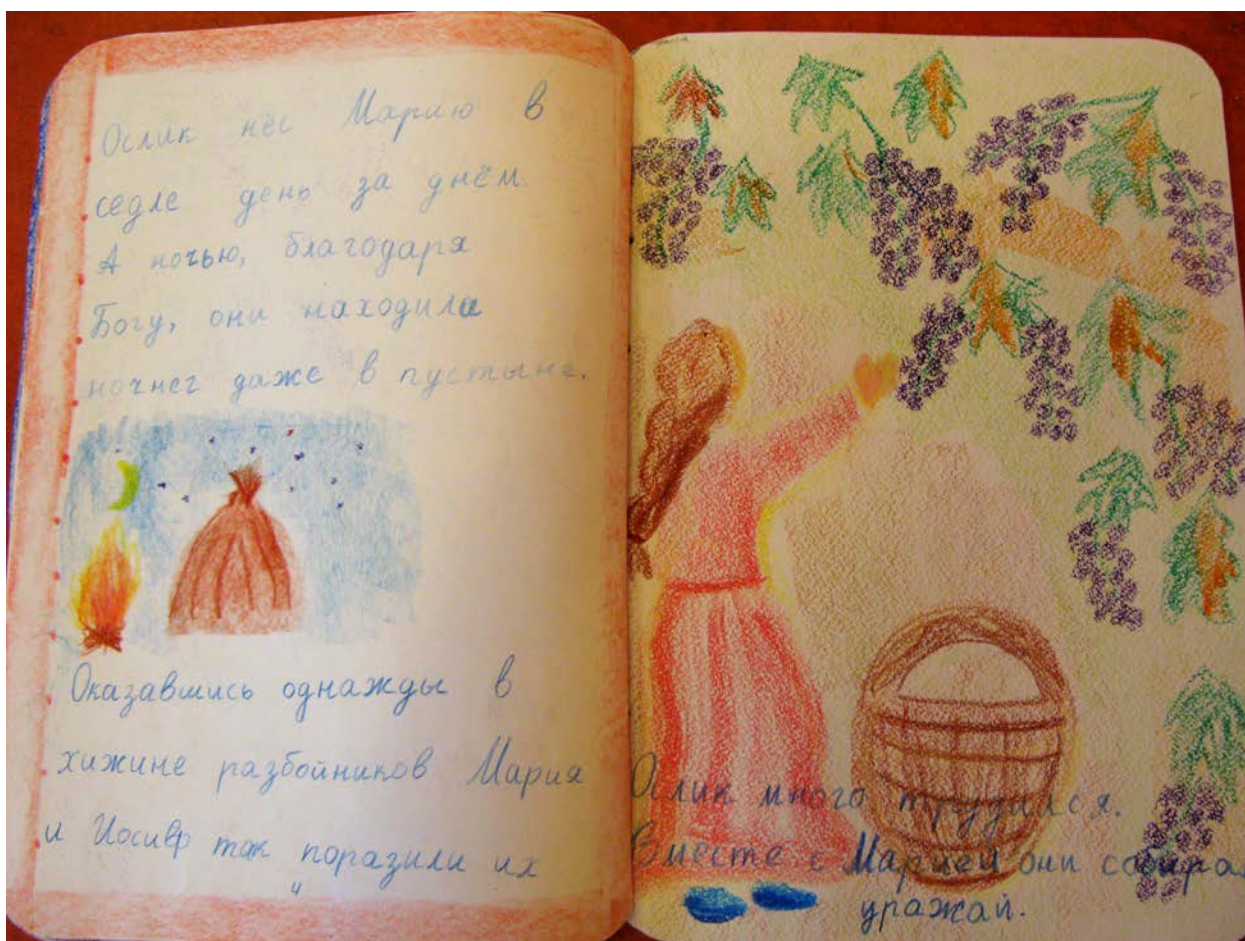 Ослик нёс Марию в
седле день за днём.
А ночью, благодаря
Богу, они находили
ночлег даже в пустыне.
Оказавшись однажды в
хижине разбойников Мария
и Иосиф так поразили их
4
Ослик много трудился.
Вместе с Марией они собирал
уражай.